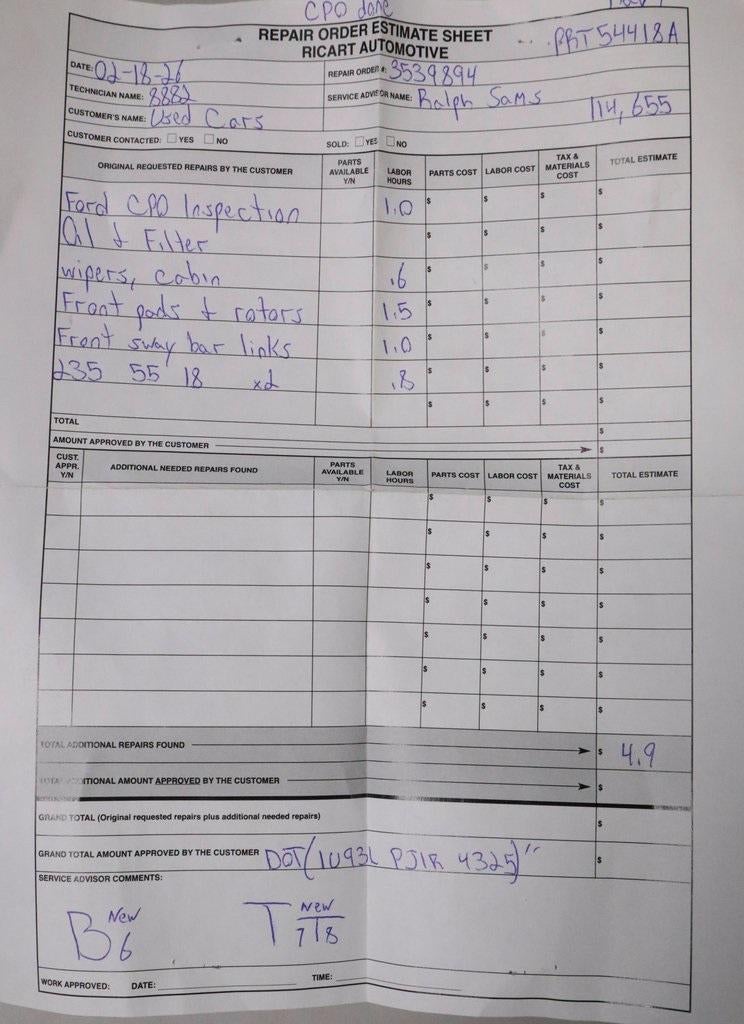 CPO done
REPAIR ORDER ESTIMATE SHEET
RICART AUTOMOTIVE
PRT54418A
DATE: 02-18-26
REPAIR ORDER #: 3539894
TECHNICIAN NAME: 8882
SERVICE ADVISOR NAME: Ralph Sams
114,655
CUSTOMER'S NAME: Used Cars
CUSTOMER CONTACTED: ☐ YES ☐ NO
SOLD: ☐ YES ☐ NO
ORIGINAL REQUESTED REPAIRS BY THE CUSTOMER PARTS AVAILABLE Y/N LABOR HOURS PARTS COST LABOR COST TAX & MATERIALS COST TOTAL ESTIMATE
Ford CPO Inspection 1.0 $ $ $ $
Oil & Filter $ $ $ $
wipers, cabin .6 $ $ $ $
Front pads & rotors 1.5 $ $ $ $
Front sway bar links 1.0 $ $ $ $
235 55 18 x2 .8 $ $ $ $
$ $ $ $
TOTAL $
AMOUNT APPROVED BY THE CUSTOMER $
CUST. APPR. Y/N ADDITIONAL NEEDED REPAIRS FOUND PARTS AVAILABLE Y/N LABOR HOURS PARTS COST LABOR COST TAX & MATERIALS COST TOTAL ESTIMATE
$ $ $ $
$ $ $ $
$ $ $ $
$ $ $ $
$ $ $ $
$ $ $ $
$ $ $ $
TOTAL ADDITIONAL REPAIRS FOUND $ 4.9
TOTAL ADDITIONAL AMOUNT APPROVED BY THE CUSTOMER $
GRAND TOTAL (Original requested repairs plus additional needed repairs) $
GRAND TOTAL AMOUNT APPROVED BY THE CUSTOMER DOT(1U93L PJ1R 4325)" $
SERVICE ADVISOR COMMENTS:
B New 6
T New 7 8
WORK APPROVED: DATE: TIME: